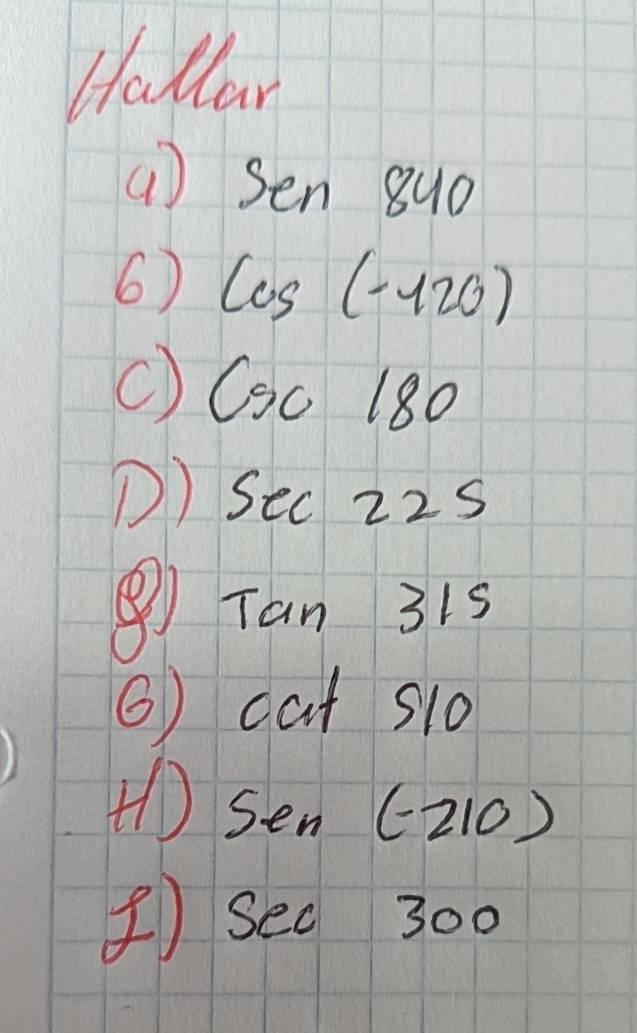 Hallar
a) Sen 840
b) Cos (-120)
C) Csc 180
D) Sec 225
g) Tan 315
G) cot 510
H) Sen (-210)
I) Sec 300